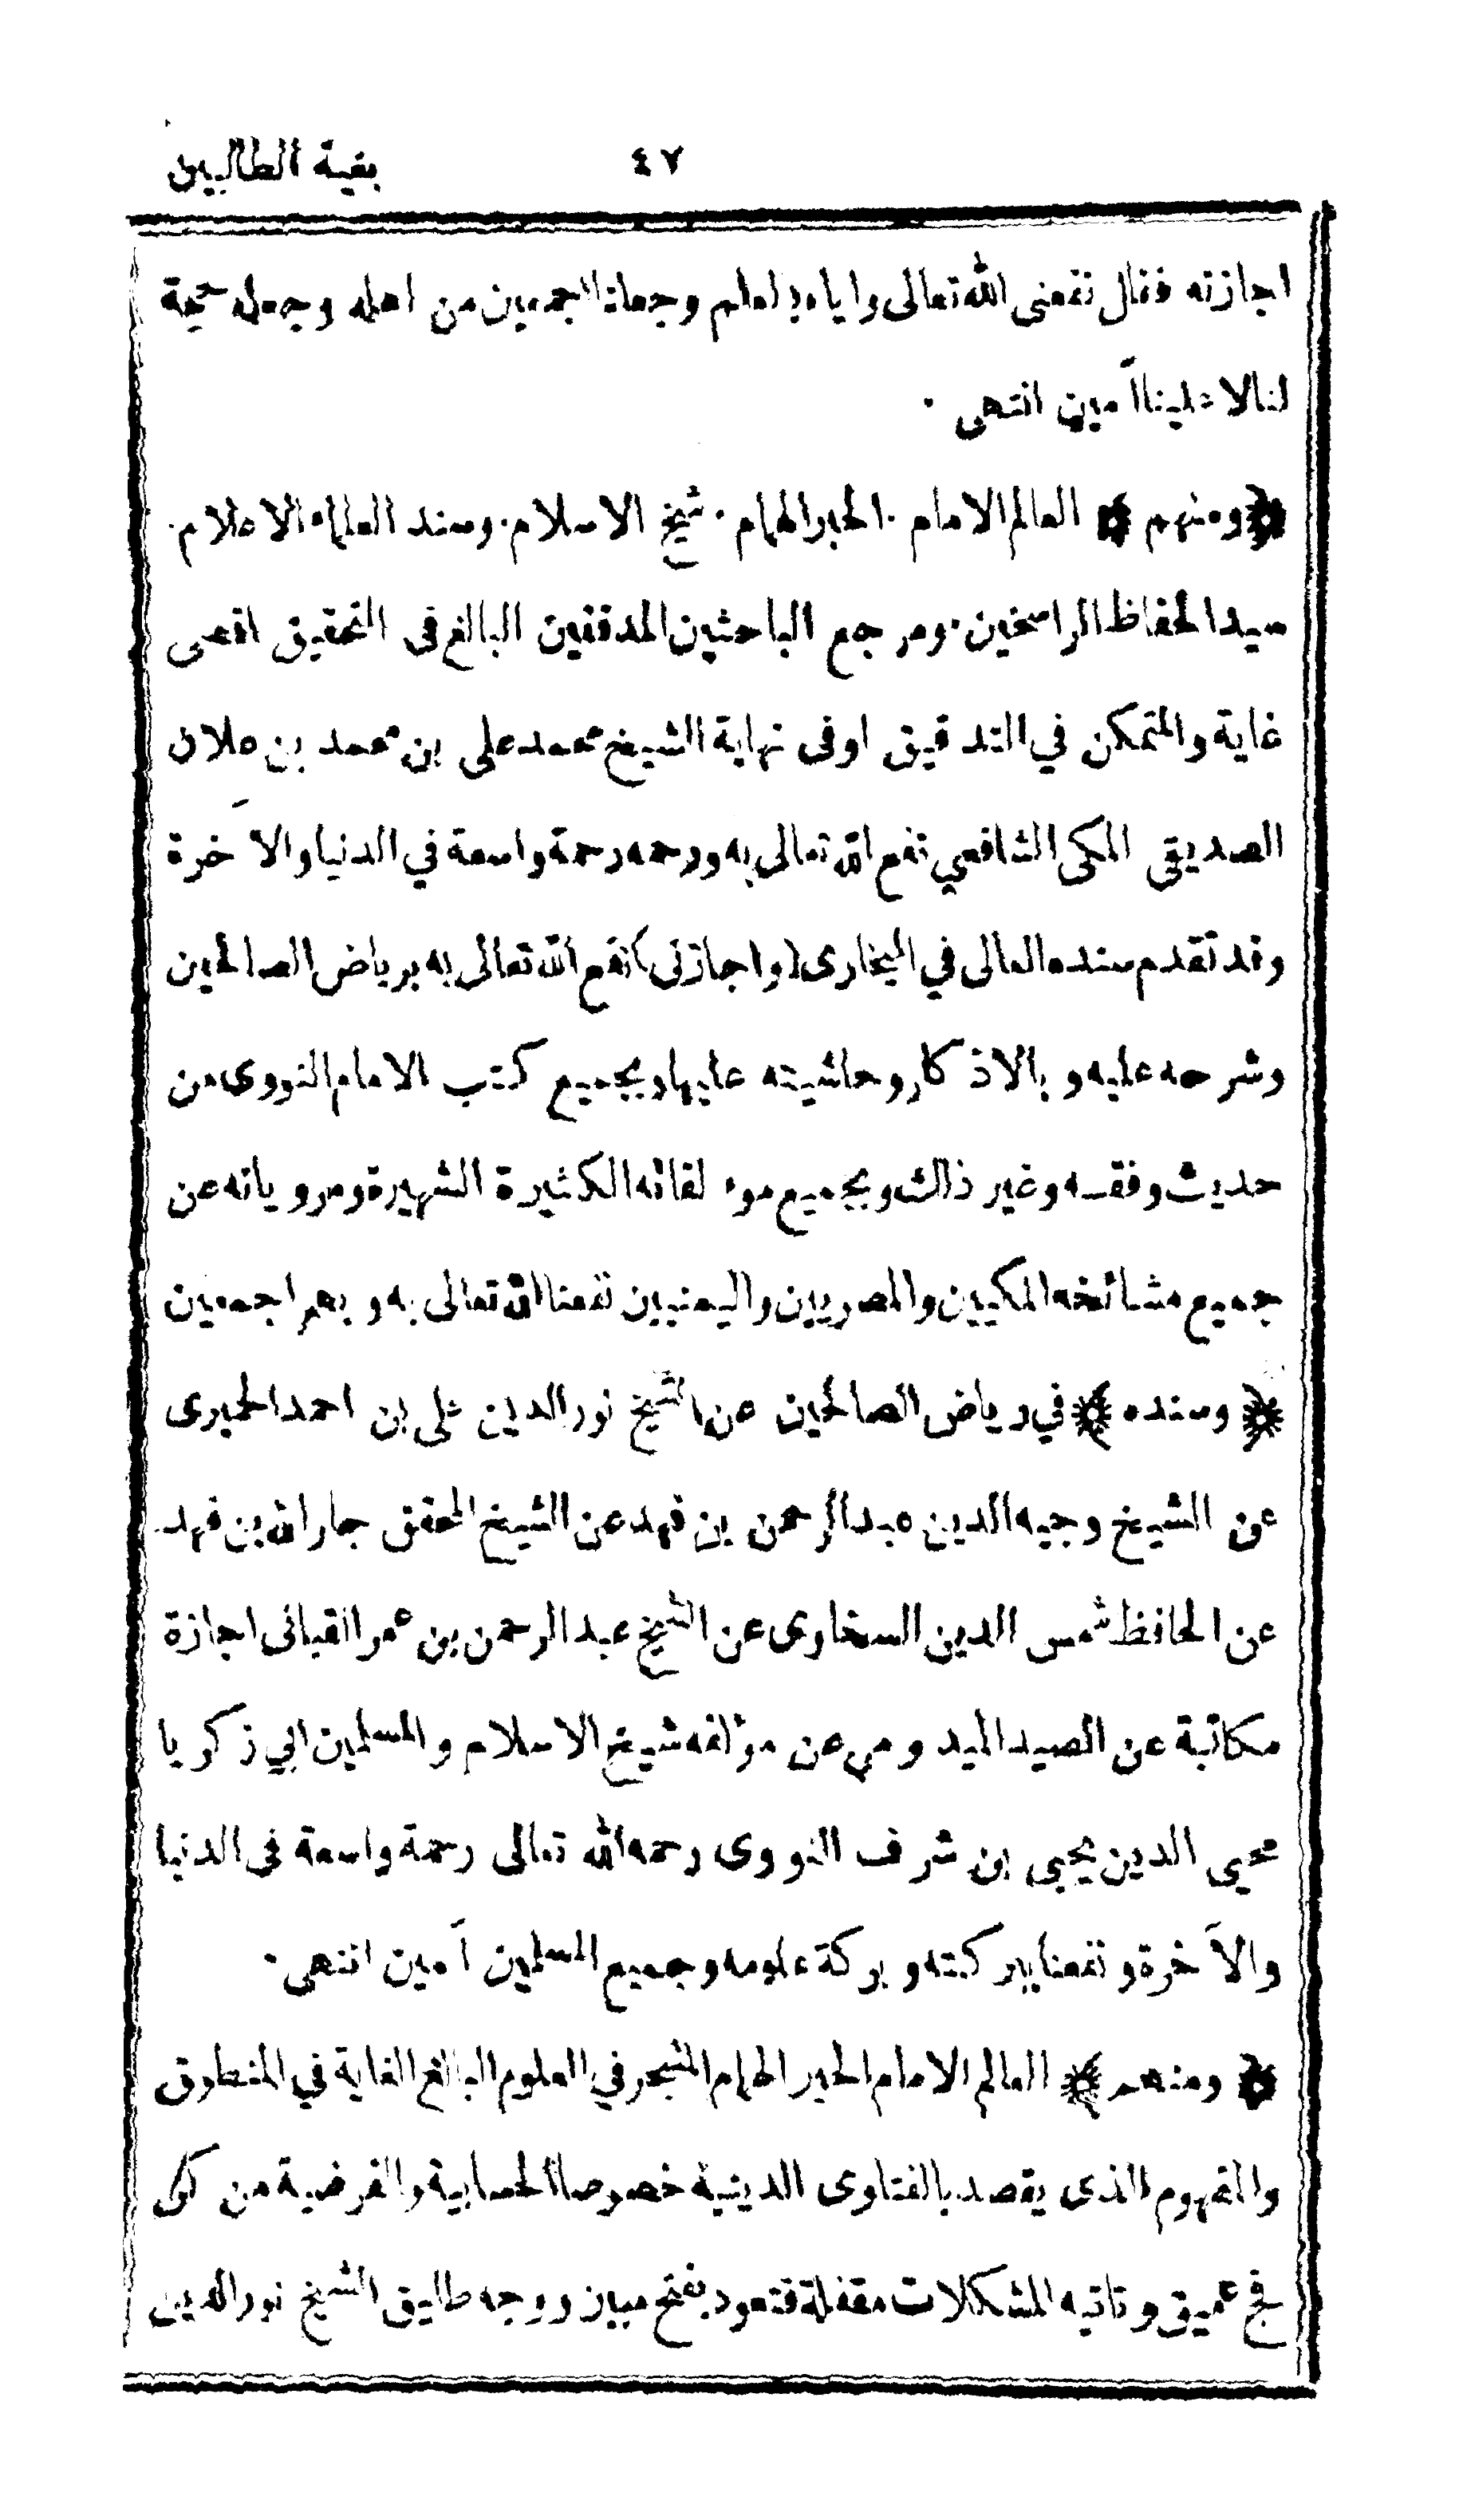 بغية الطالبين ٤٧
اجازته فقال نفعنى الله تعالى واياه بالعلم وجعلنا اجمعين من اهله وجعله حجة
لنا لا علينا آمين انتهى ٠
﴿ومنهم﴾ العالم الامام ٠ الحبر الهمام ٠ شيخ الاسلام ٠ وسند العلماء الاعلام ٠
سيد الحفاظ الراسخين ٠ ومرجع الباحثين المدققين البالغ فى التحقيق اقصى
غاية والمتمكن في التدقيق اوفى نهاية الشيخ محمد على بن محمد بن علان
الصديقى المكى الشافعي نفع الله تعالى به ورحمه رحمة واسعة في الدنيا والآخرة
وقد تقدم سنده العالى في البخارى (واجازنى) نفع الله تعالى به برياض الصالحين
وشرحه عليه وبالاذكار وحاشيته عليها وبجميع كتب الامام النووى من
حديث وفقه وغير ذالك وبجميع موء لفاته الكثيرة الشهيرة ومروياته عن
جميع مشائخه المكيين والمصريين واليمنيين نفعنا الله تعالى به وبهم اجمعين
﴿وسنده﴾ في رياض الصالحين عن الشيخ نور الدين على بن احمد الحميرى
عن الشيخ وجيه الدين عبد الرحمن بن فهد عن الشيخ المحقق جار الله بن فهد
عن الحافظ شمس الدين السخاوى عن الشيخ عبد الرحمن بن عمر القبانى اجازة
مكاتبة عن الصيد الميد ومي عن مؤلفه شيخ الاسلام والمسلمين ابي زكريا
محيى الدين يحيى بن شرف النووى رحمه الله تعالى رحمة واسعة فى الدنيا
والآخرة ونفعنا ببركته وبركة علومه وجميع المسلمين آمين انتهى ٠
﴿ومنهم﴾ العالم الامام الحبر الهمام المتبحر في العلوم البالغ الغاية في المنطوق
والمفهوم الذى يقصد بالفتاوى الدينية خصوصا الحسابية والفرضية من كل
فج عميق وتاتيه المشكلات مقفلة فتعود بفتح مبين ووجه طليق الشيخ نور الدين